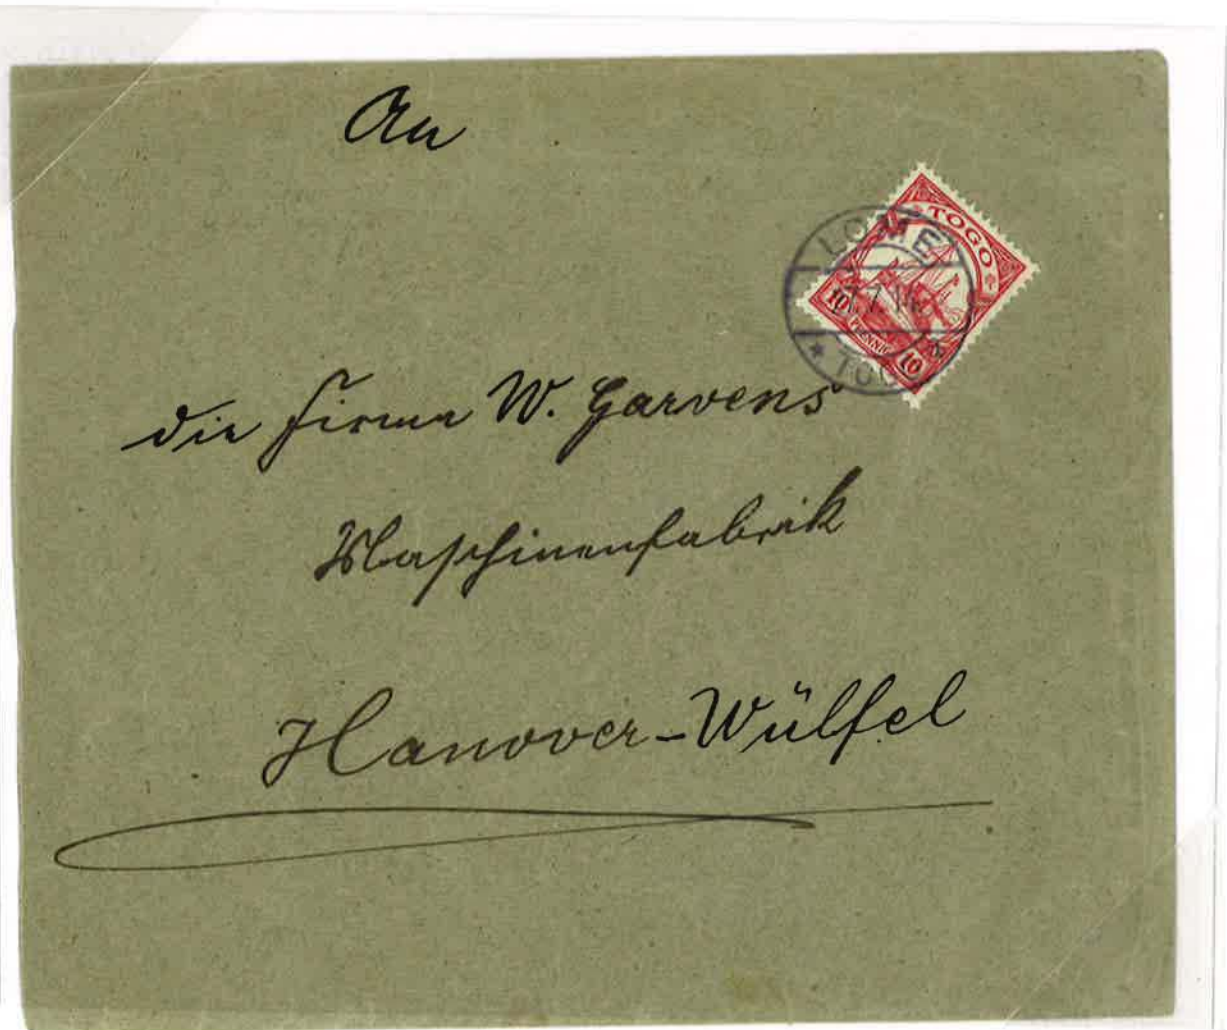 An
TOGO
10 PFENNIG 10
LOME
TOGO
die Firma W. Garvens
Maschinenfabrik
Hanover-Wülfel